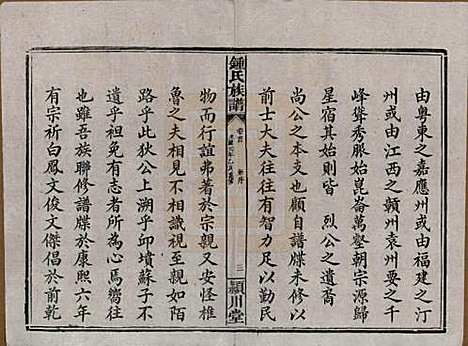 由粵東之嘉應州或由福建之汀
州或由江西之贛州袁州要之千
峰聳秀脈始崑崙萬壑朝宗源歸
星宿其始則皆 烈公之遺裔
尚公之本支也顧自譜牒未修以
前士大夫往往有智力足以勤民
鍾氏族譜
卷首
三
潁川堂
物而行誼弗著於宗親又安怪椎
魯之夫相見不相識視至親如陌
路乎此狄公上溯乎邱墳蘇子不
遺乎袒免有志者所為心焉嚮往
也雖吾族聯修譜牒於康熙六年
有宗祈白鳳文俊文傑倡於前乾